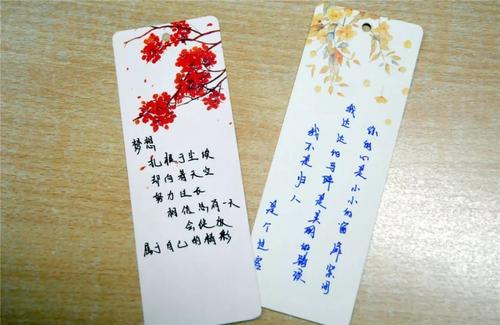 梦想
扎根于尘埃
却向着天空
努力生长
相信总有一天
会绽放
属于自己的精彩
你的心是小小的窗扉紧闭
我达达的马蹄是美丽的错误
我不是归人 是个过客